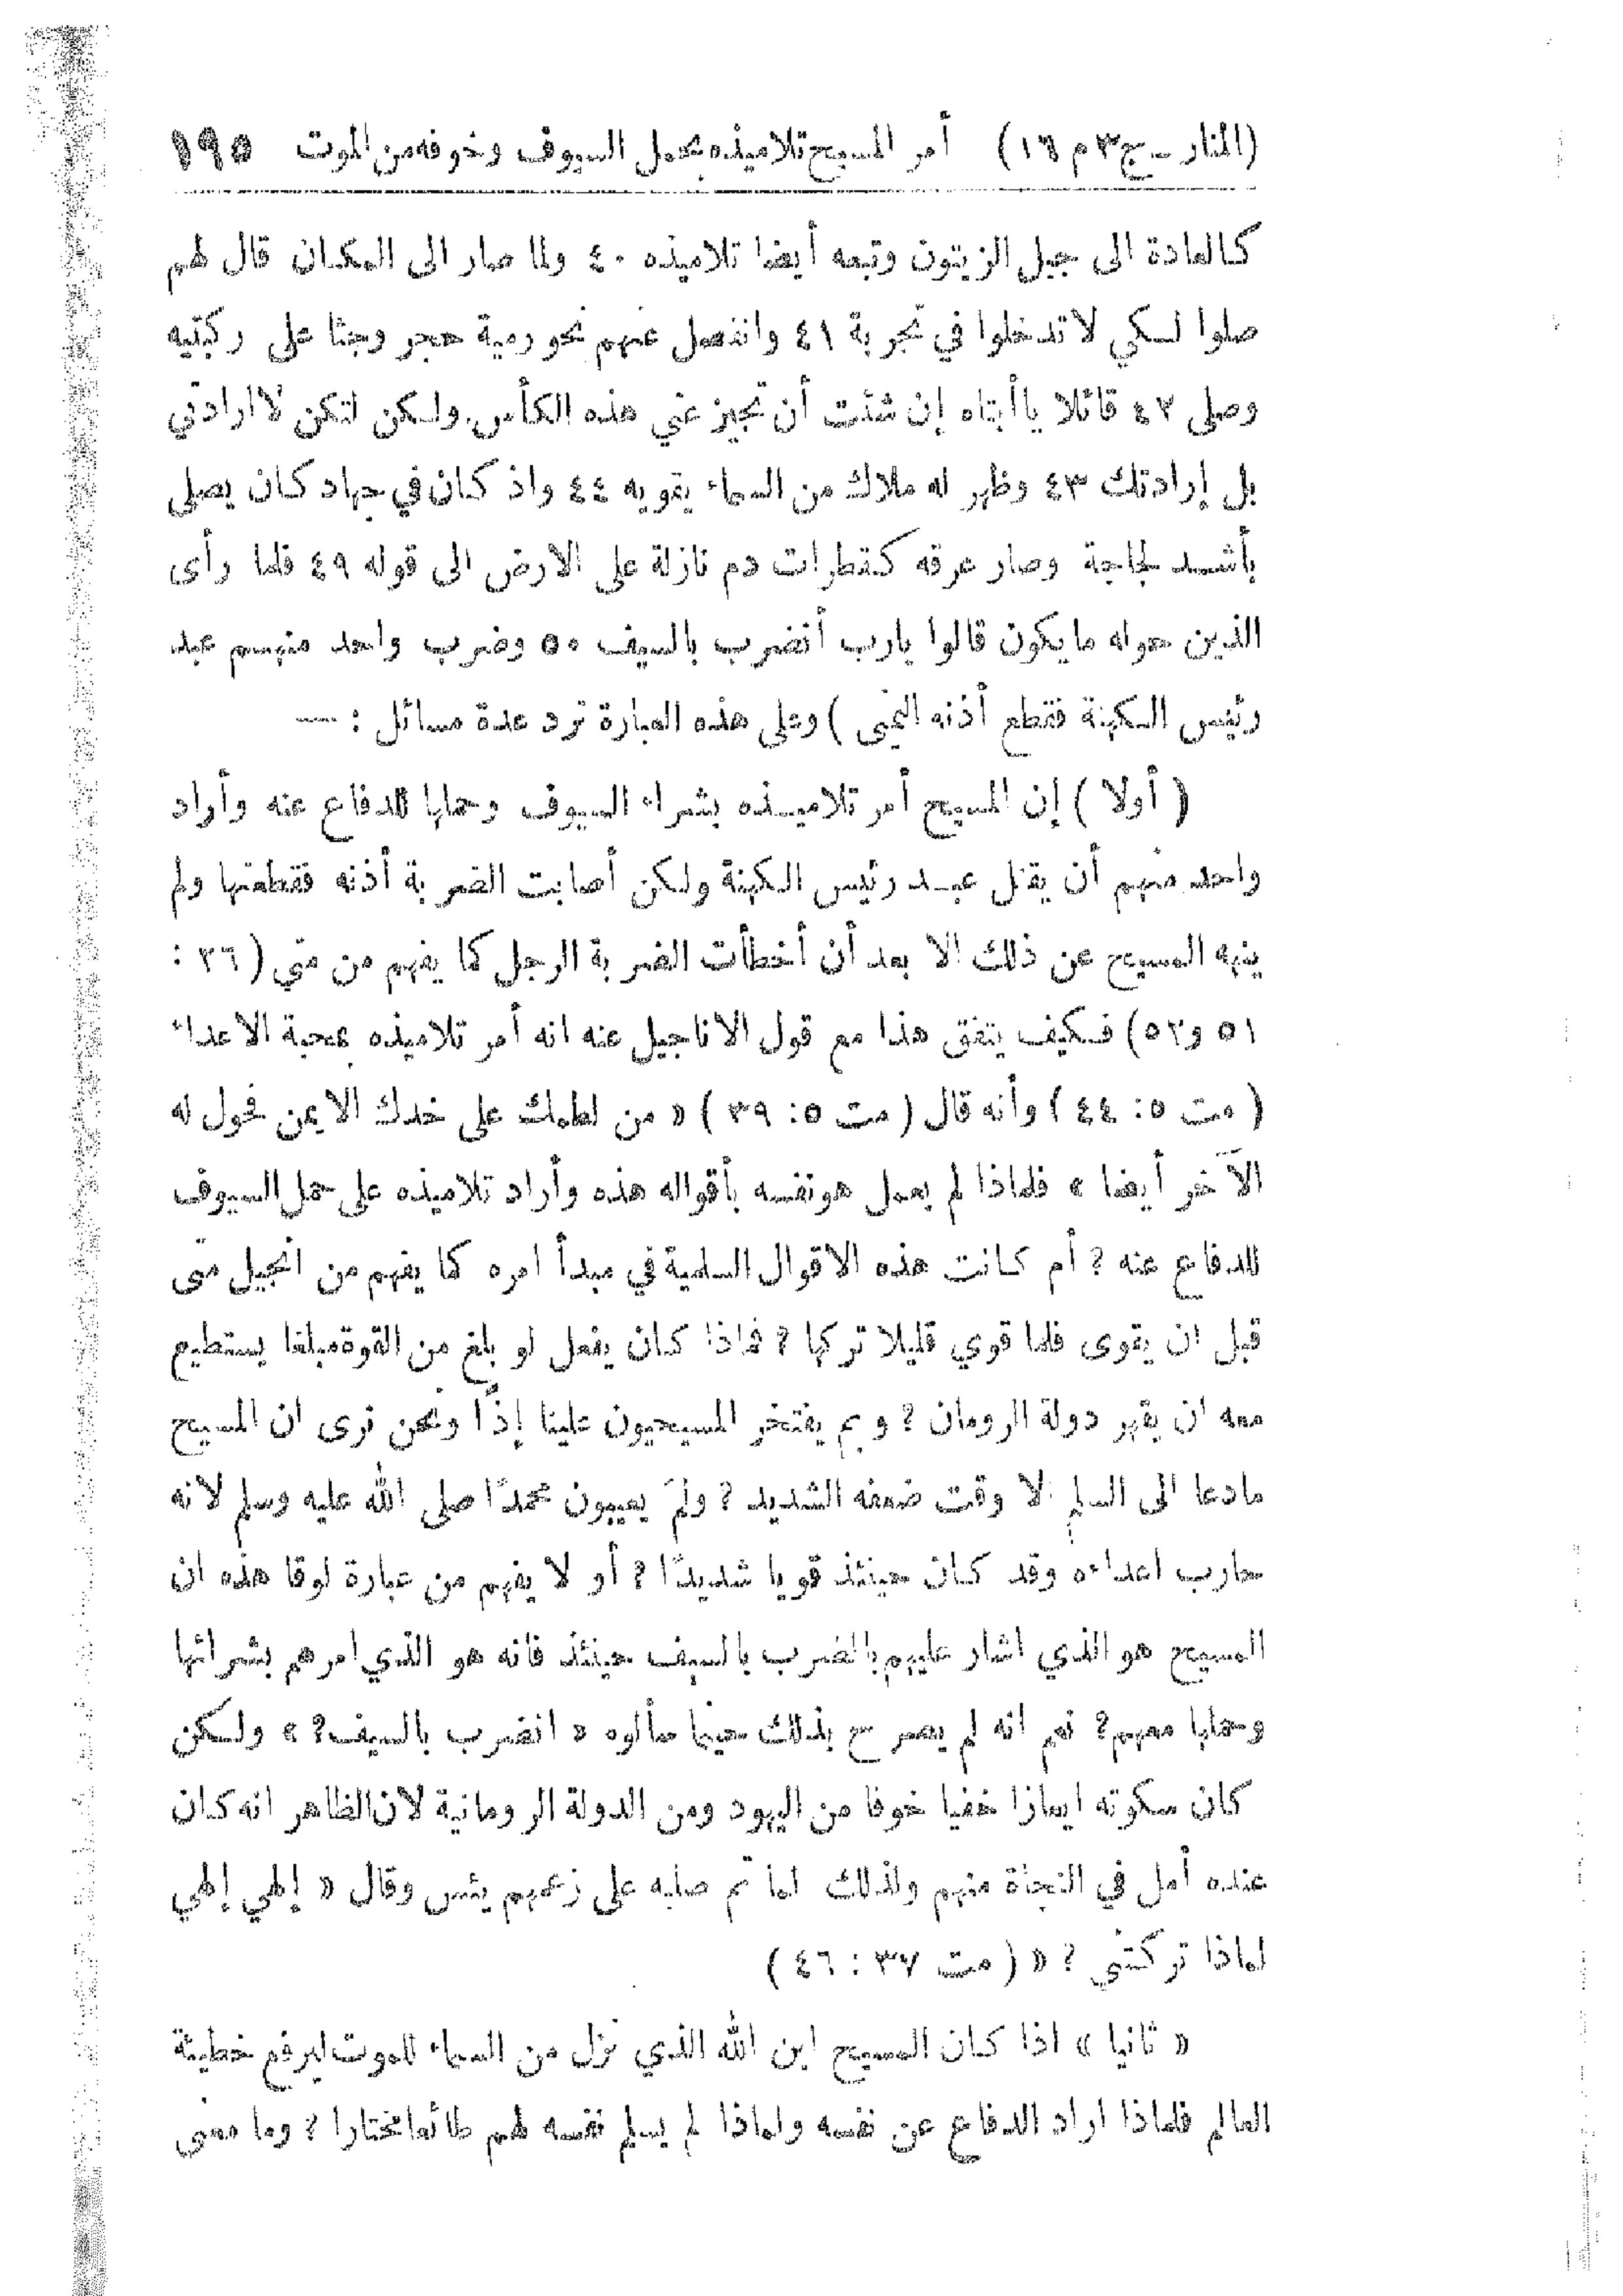 (المنار ـ ج ٣ م ١٦) أمر المسيح تلاميذه بحمل السيوف وخوفه من الموت ١٩٥
كالعادة الى جبل الزيتون وتبعه أيضا تلاميذه ٤٠ ولما صار الى المكان قال لهم
صلوا لكي لا تدخلوا في تجربة ٤١ وانفصل عنهم نحو رمية حجر وجثا على ركبتيه
وصلى ٤٢ قائلا ياأبتاه إن شئت أن تجيز عني هذه الكأس. ولكن لتكن لا ارادتي
بل إرادتك ٤٣ وظهر له ملاك من السماء يقويه ٤٤ واذ كان في جهاد كان يصلى
بأشد لجاجة وصار عرقه كقطرات دم نازلة على الارض الى قوله ٤٩ فلما رأى
الذين حوله مايكون قالوا يارب أنضرب بالسيف ٥٠ وضرب واحد منهم عبد
رئيس الكهنة فقطع أذنه اليمنى) وعلى هذه العبارة ترد عدة مسائل : —
(أولا) إن المسيح أمر تلاميذه بشراء السيوف وحملها للدفاع عنه وأراد
واحد منهم أن يقتل عبد رئيس الكهنة ولكن أصابت الضربة أذنه فقطعتها ولم
ينهه المسيح عن ذلك الا بعد أن أخطأت الضربة الرجل كما يفهم من متي (٢٦ :
٥١ و٥٢) فكيف يتفق هذا مع قول الاناجيل عنه انه أمر تلاميذه بمحبة الاعداء
(مت ٥: ٤٤) وأنه قال (مت ٥: ٣٩) « من لطمك على خدك الايمن فحول له
الآخر أيضا » فلماذا لم يعمل هو نفسه بأقواله هذه وأراد تلاميذه على حمل السيوف
للدفاع عنه ? أم كانت هذه الاقوال السلمية في مبدأ امره كما يفهم من انجيل متى
قبل ان يقوى فلما قوي قليلا تركها ? فماذا كان يفعل لو بلغ من القوة مبلغا يستطيع
معه ان يقهر دولة الرومان ? وبم يفتخر المسيحيون علينا إذًا ونحن نرى ان المسيح
مادعا الى السلم الا وقت ضعفه الشديد ? ولمَ يعيبون محمدًا صلى الله عليه وسلم لانه
حارب اعداءه وقد كان حينئذ قويا شديدًا ? أو لا يفهم من عبارة لوقا هذه ان
المسيح هو الذي اشار عليهم بالضرب بالسيف حينئذ فانه هو الذي امرهم بشرائها
وحملها معهم? نعم انه لم يصرح بذلك حينما سألوه « انضرب بالسيف? » ولكن
كان سكوته ايعازا خفيا خوفا من اليهود ومن الدولة الرومانية لان الظاهر انه كان
عنده أمل في النجاة منهم ولذلك لما تم صلبه على زعمهم يئس وقال « إلهي إلهي
لماذا تركتني ? » (مت ٣٧ : ٤٦)
« ثانيا » اذا كان المسيح ابن الله الذي نزل من السماء للموت ليرفع خطيئة
العالم فلماذا اراد الدفاع عن نفسه ولماذا لم يسلم نفسه لهم طائعا مختارا ? وما معنى